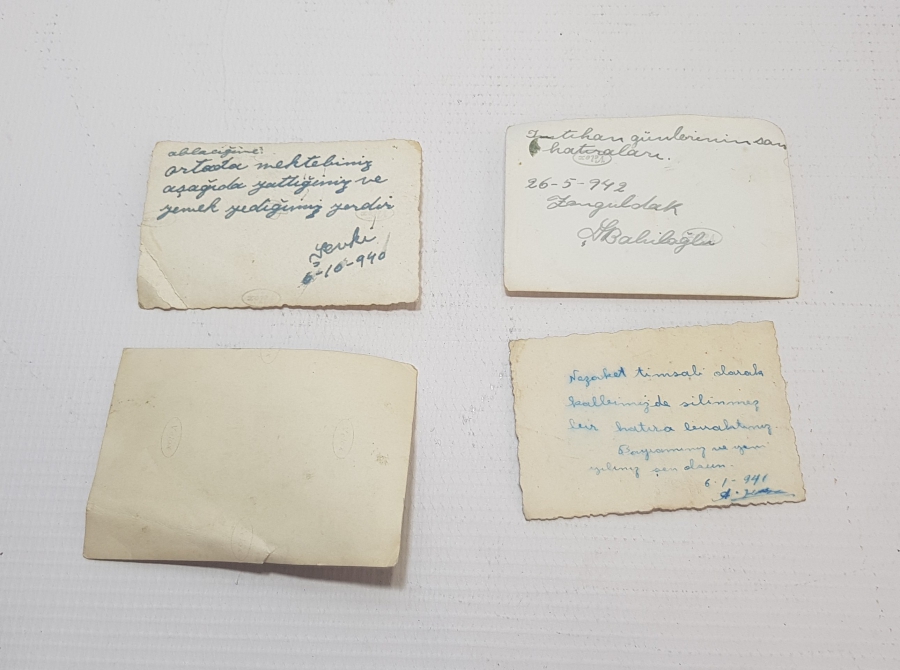 ablacığıma:
ortada mektebimiz
aşağıda yattığımız ve
yemek yediğimiz yerdir
Şevki
6-10-940
İmtihan günlerinin son
hatıraları.
26-5-942
Zonguldak
Nezaket timsali olarak
kalbimizde silinmez
bir hatıra bıraktınız.
Bayramınız ve yeni
yılınız şen olsun.
6-1-941